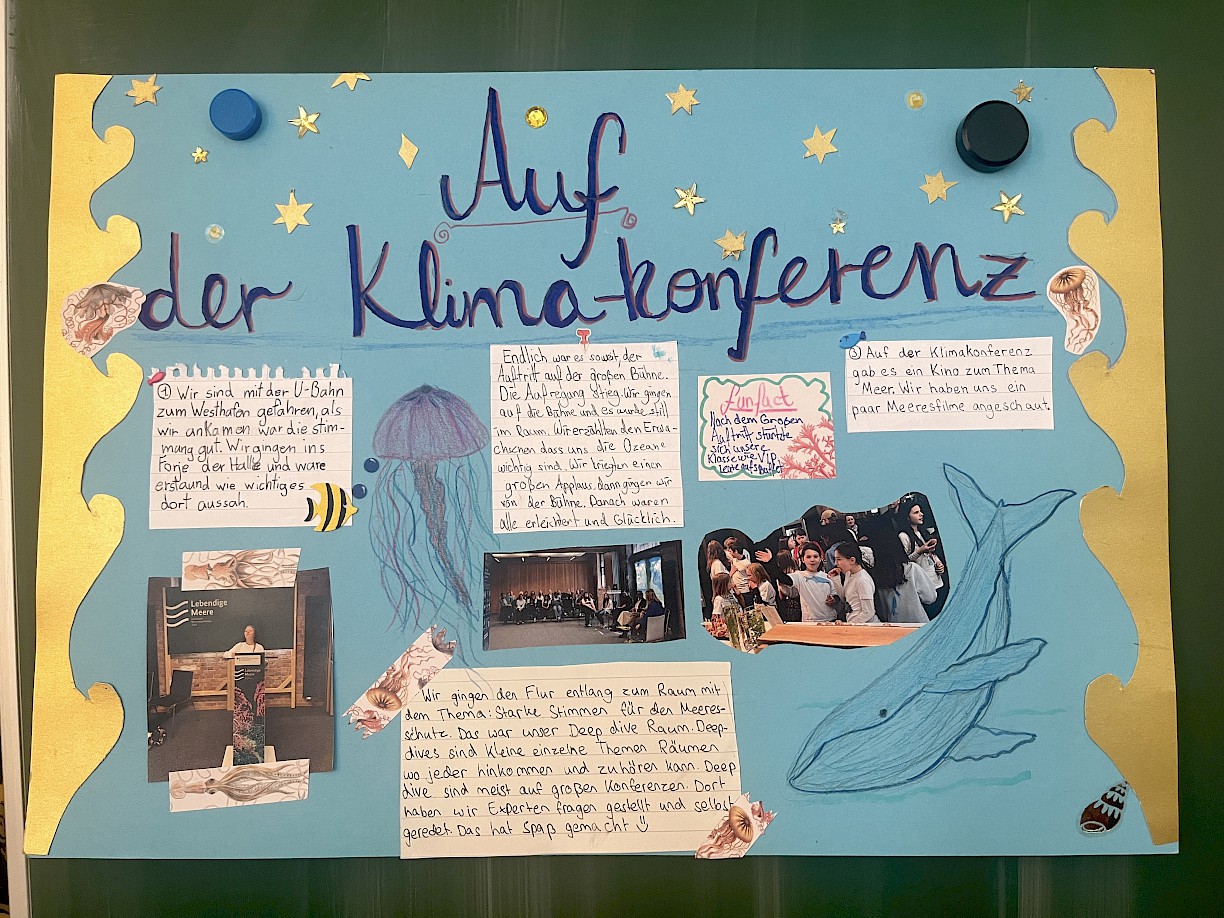 Auf
der Klima-konferenz
① Wir sind mit der U-Bahn
zum Westhafen gefahren, als
wir ankamen war die stim-
mung gut. Wir gingen ins
Forje der Halle und ware
erstaund wie wichtiges
dort aussah.
Endlich war es soweit, der
Auftritt auf der großen Bühne.
Die Aufregung stieg. Wir gingen
auf die Bühne und es wurde still
im Raum. Wir erzählten den Erwa-
chsenen dass uns die Ozeane
wichtig sind. Wir kriegten einen
großen Applaus. dann gingen wir
von der Bühne. Danach waren
alle erleichtert und Glücklich.
funfact
Nach dem Großen
Auftritt stürtzte
sich unsere
Klasse wie VIP
Leute aufs Buffet
③ Auf der Klimakonferenz
gab es ein Kino zum Thema
Meer. Wir haben uns ein
paar Meeresfilme angeschaut.
Lebendige
Meere
Lebendige
Meere
Wir gingen den Flur entlang zum Raum mit
dem Thema: Starke Stimmen für den Meeres-
schutz. Das war unser Deep dive Raum. Deep-
dives sind Kleine einzelne Themen Räumen
wo jeder hinkommen und zuhören kann. Deep
dive sind meist auf großen Konferenzen. Dort
haben wir Experten fragen gestellt und selbst
geredet. Das hat Spaß gemacht ☺